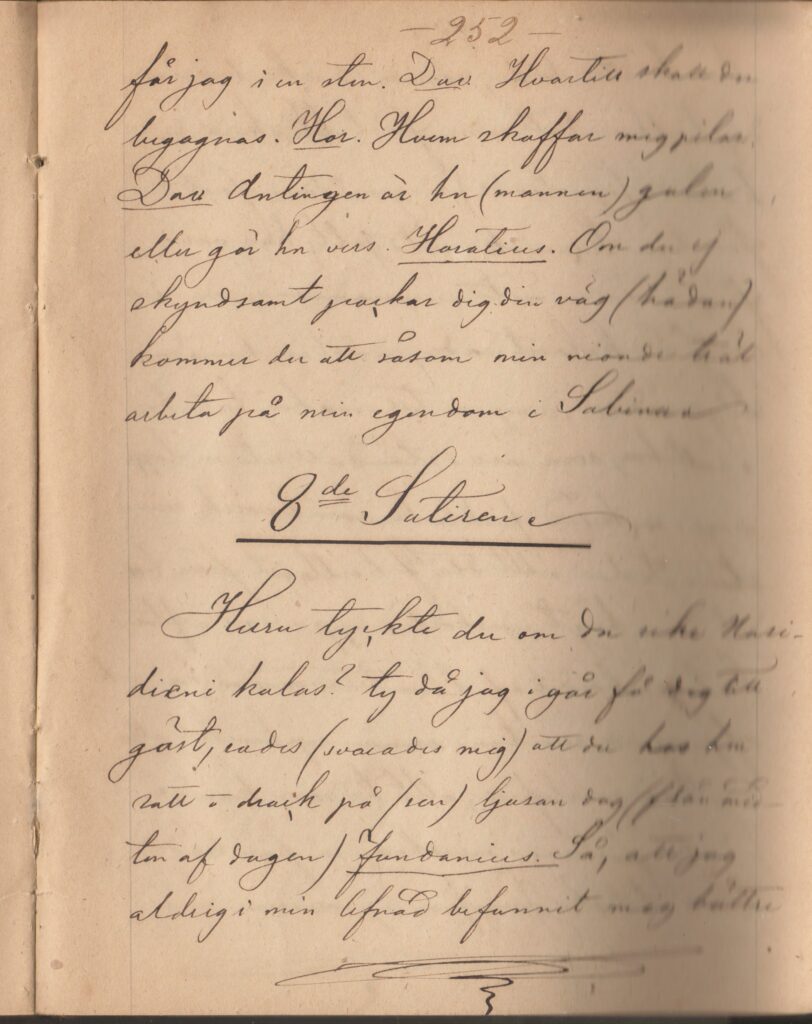 - 252 -
får jag i en sten. Dav. Hvartill skall den
begagnas. Hor. Hvem skaffar mig pilar.
Dav Antingen är hn (mannen) galen
eller gör hn vers. Horatius. Om du ej
skyndsamt packar dig din väg (hädan)
kommer du att såsom min nionde träl
arbeta på min egendom i Sabina
8de Satiren
Huru tyckte du om den rike Nasi-
dieni kalas? ty då jag i går få dig till
gäst, sades (svarades mig) att du hos hm
satt o drack på (sen) ljusan dag (från mid-
ten af dagen) Fundanius. Så, att jag
aldrig i min lefnad befunnit mig bättre